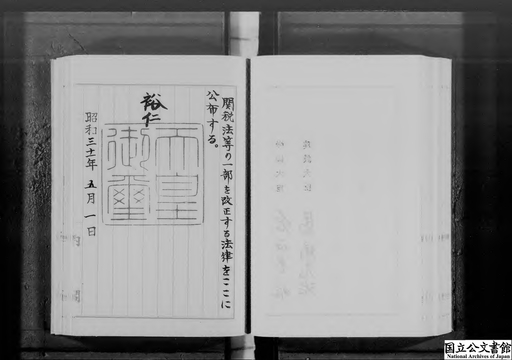 関税法等の一部を改正する法律をここに
公布する。
裕仁
天皇
御璽
昭和三十一年 五月 一日
国立公文書館
National Archives of Japan